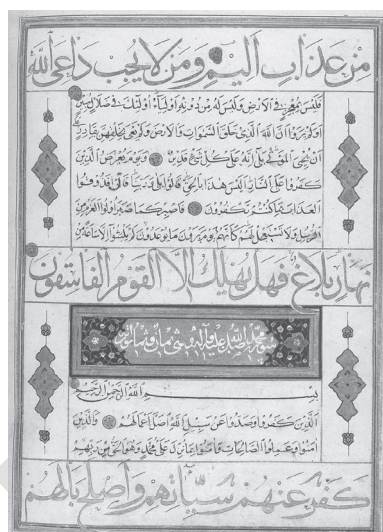 من عذاب اليم ومن لا يجب داعي الله
فليس بمعجز في الارض وليس له من دونه اولياء اولئك في ضلال مبين
اولم يروا ان الله الذي خلق السموات والارض ولم يعي بخلقهن بقادر على
ان يحيي الموتى بلى انه على كل شيء قدير ويوم يعرض الذين
كفروا على النار اليس هذا بالحق قالوا بلى وربنا قال فذوقوا
العذاب بما كنتم تكفرون فاصبر كما صبر اولوا العزم من
الرسل ولا تستعجل لهم كانهم يوم يرون ما يوعدون لم يلبثوا الا ساعة من
نهار بلاغ فهل يهلك الا القوم الفاسقون
سورة محمد صلى الله عليه وآله
بسم الله الرحمن الرحيم
الذين كفروا وصدوا عن سبيل الله اضل اعمالهم والذين
امنوا وعملوا الصالحات وامنوا بما نزل على محمد وهو الحق من ربهم
كفر عنهم سيئاتهم واصلح بالهم